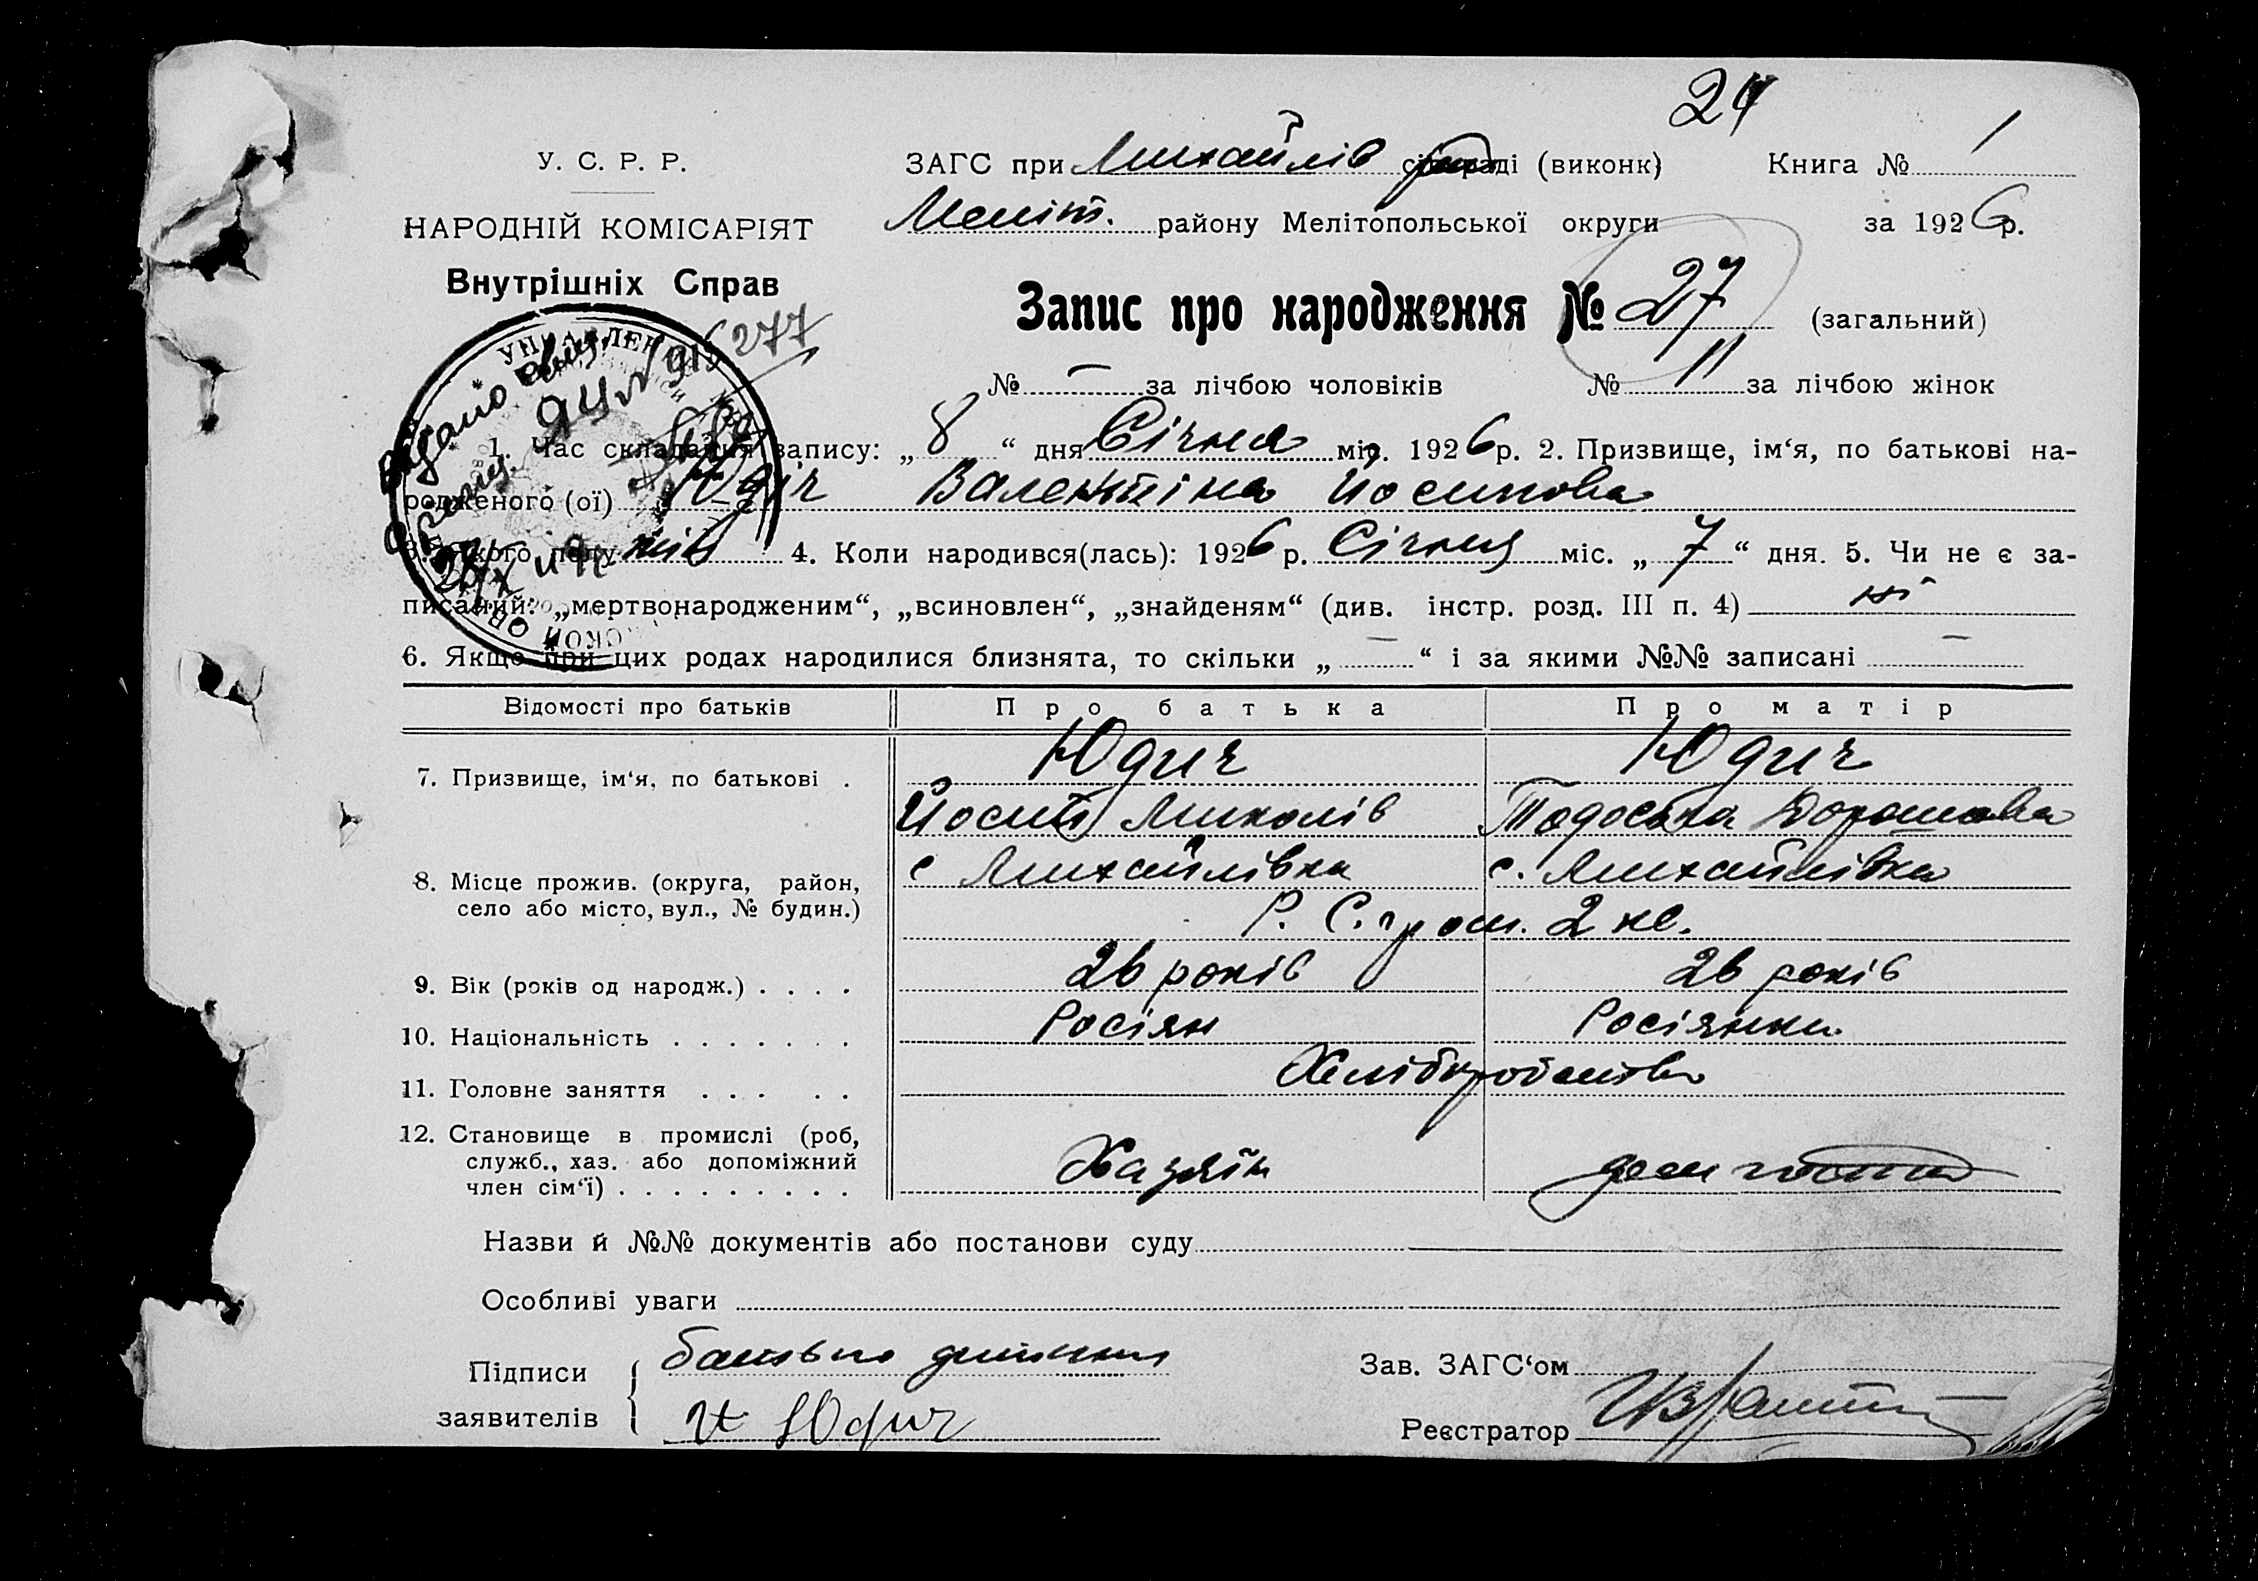 24
У. С. Р. Р.
ЗАГС при Михайлів сільраді (виконк)
Книга № 1
НАРОДНІЙ КОМІСАРІЯТ
Меліт. району Мелітопольської округи
за 1926 р.
Внутрішніх Справ
277
Запис про народження № 27 (загальний)
№ — за лічбою чоловіків № 11 за лічбою жінок
1. Час складання запису: „ 8 “ дня Січня міс. 1926 р. 2. Призвище, ім‘я, по батькові на-
родженого (ої) Юдіч Валентіна Йосипова
3. Якого полу жін 4. Коли народився(лась): 1926 р. Січня міс. „ 7 “ дня. 5. Чи не є за-
писаний: „мертвонародженим“, „всиновлен“, „знайденям“ (див. інстр. розд. III п. 4) ні
6. Якщо при цих родах народилися близнята, то скільки „ — “ і за якими №№ записані —
Відомості про батьків Про батька Про матір
7. Призвище, ім‘я, по батькові . Юдич Юдич
Йосип Миколів Тодоська Дорошова
8. Місце прожив. (округа, район, с Михайлівка с. Михайлівка
село або місто, вул., № будин.) Р. С. 2
9. Вік (років од народж.) . . . . 26 років 26 років
10. Національність . . . . . . . Росіян Росіянка
11. Головне заняття . . . . . Хліборобство
12. Становище в промислі (роб,
служб., хаз. або допоміжний Хазяїн
член сім‘ї) . . . . . . . . .
Назви й №№ документів або постанови суду
Особливі уваги
Підписи батько дитини Зав. ЗАГС‘ом
заявителів Юдич Реєстратор